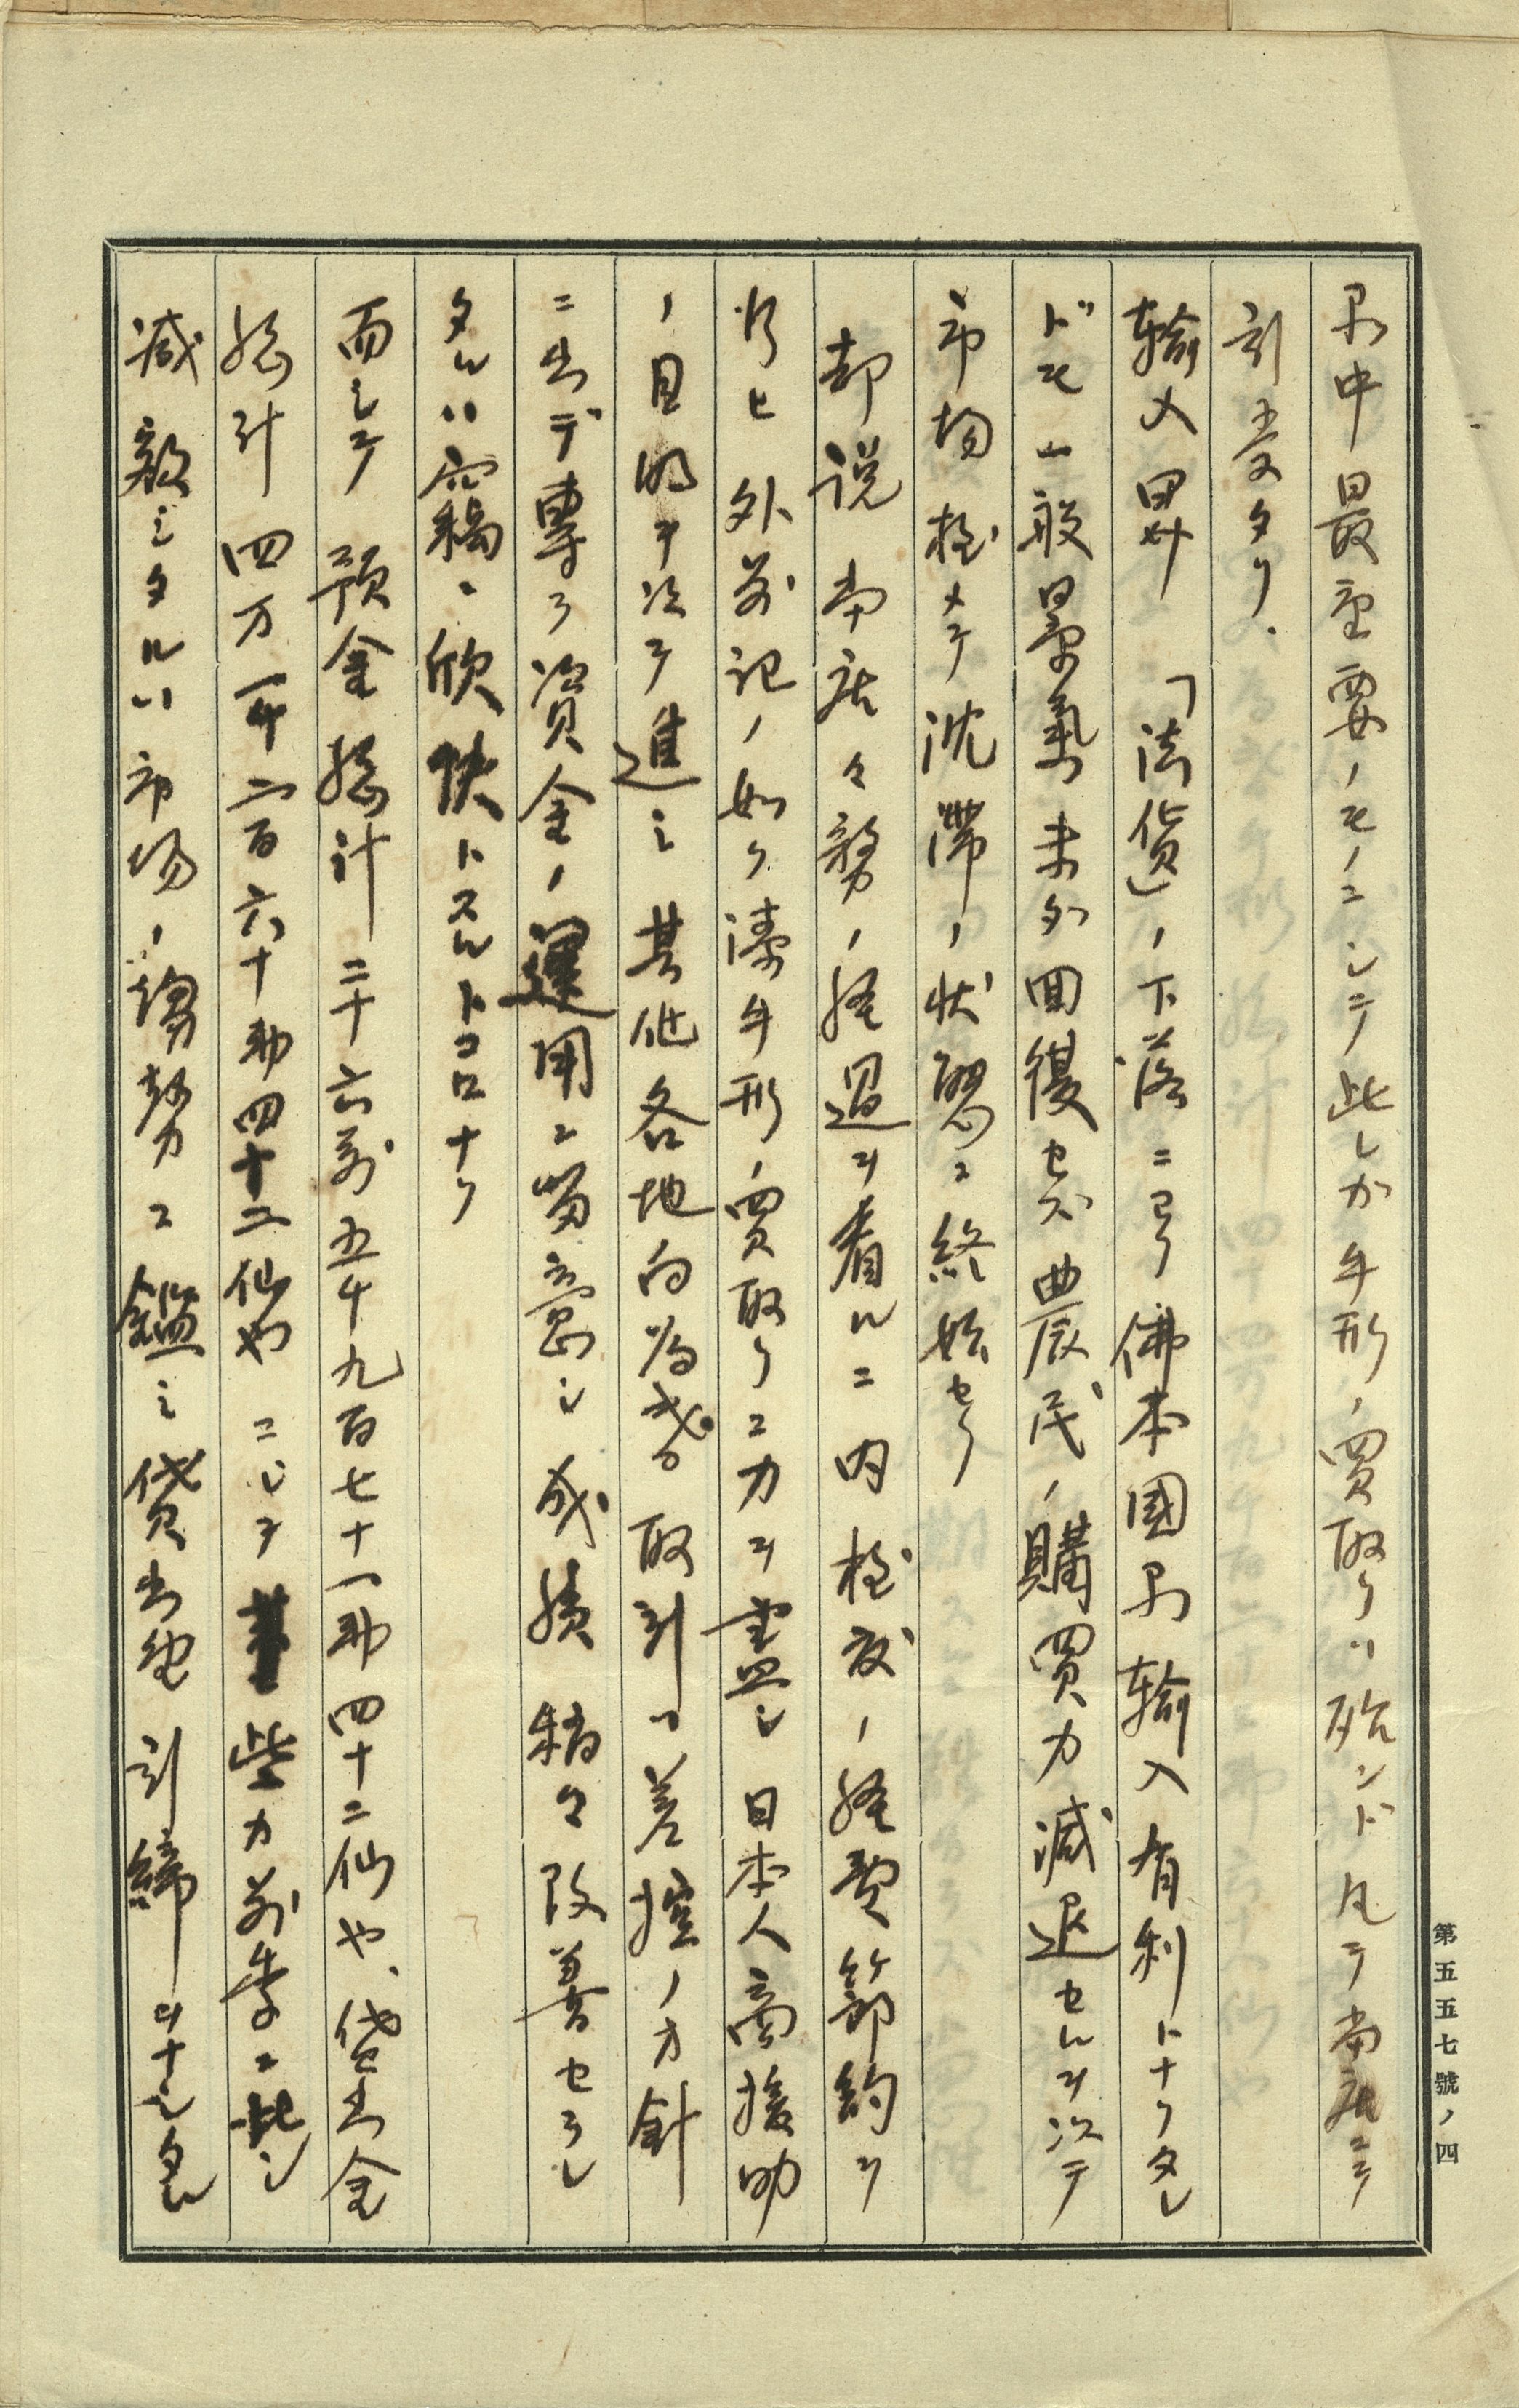 界中最重要ノモノニシテ此レカ手形ノ買取リハ殆ンド凡テ当店ニテ
引受タリ、
輸入界ハ「法貨」ノ下落ニヨリ佛本國品輸入有利トナリタレ
ドモ一般景氣未タ回復セズ農民ノ購買力減退セルヲ以テ
市場極メテ沈滞ノ状態ニ終始セリ
却説 本店々勢ノ経過ヲ看ルニ内極度ノ経費節約ヲ
行ヒ外前記ノ如ク漆手形ノ買取リニ力ヲ盡シ日本人商援助
ノ目的ヲ以テ進ミ其他各地向為替取引ハ差控ノ方針
ニ出デ専ラ資金ノ運用ニ留意シ成績稍々改善セラレ
タルハ窃ニ欣快トスルトコロナリ
而シテ 預金総計二十六万五千九百七十一弗四十二仙也、貸出金
総計四万一千二百六十弗四十二仙也ニシテ些カ前季ニ比シ
減報シタルハ市場ノ趨勢ニ鑑ミ貸出ヲ引締ヲナシタル
第五五七號ノ四